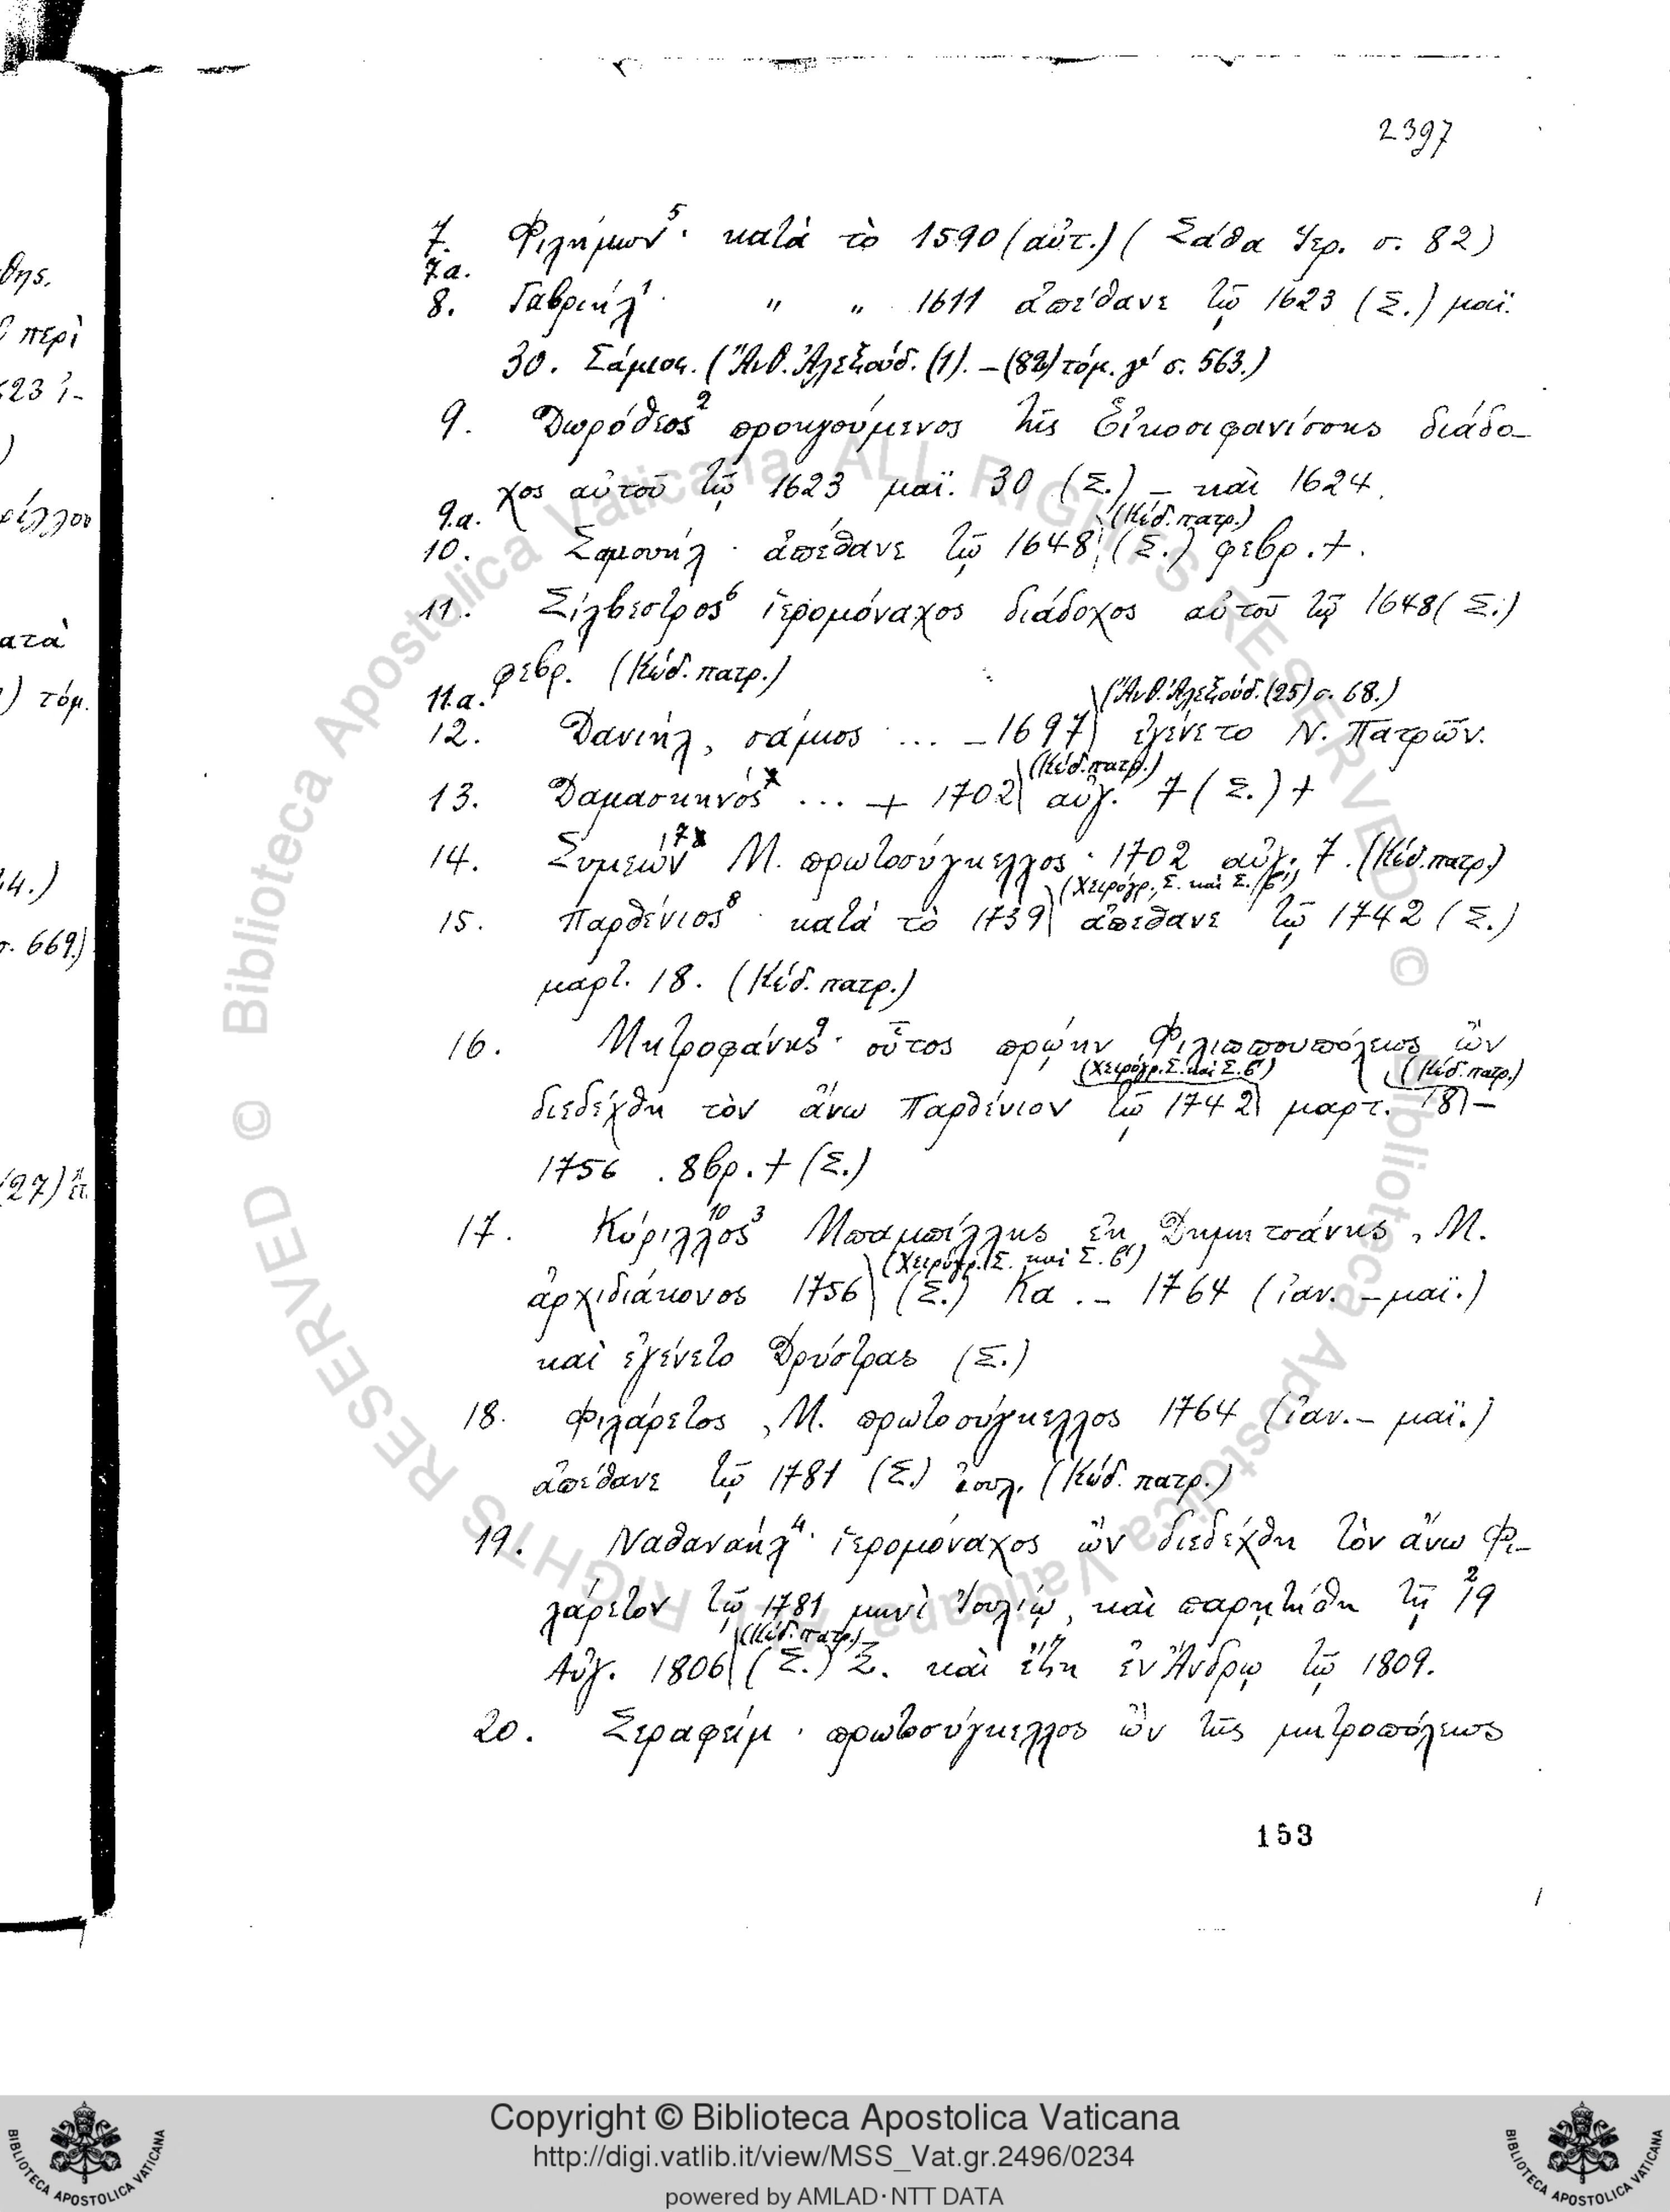 2397
7. Φιλήμων⁵· κατὰ τὸ 1590 (αὐτ.) ( Σάθα Ἱερ. σ. 82)
7α.
8. Γαβριήλ¹· " " 1611 ἀπέθανε τῷ 1623 (Σ.) μαΐ.
30. Σάμιος. (Ἀνθ. Ἀλεξούδ. (1). – (82) τόμ. γ' σ. 563.)
9. Δωρόθεος² προηγούμενος τῆς Εἰκοσιφανίσσης διάδο-
χος αὐτοῦ τῷ 1623 μαΐ. 30 (Σ.) – καὶ 1624.
9.α. (Κώδ. πατρ.)
10. Σαμουήλ · ἀπέθανε τῷ 1648 (Σ.) φεβρ. +.
11. Σίλβεστρος⁶ ἱερομόναχος διάδοχος αὐτοῦ τῷ 1648 (Σ.)
φεβρ. (Κώδ. πατρ.)
11.α. (Ἀνθ. Ἀλεξούδ. (25) σ. 68.)
12. Δανιήλ, σάμιος ... – 1697 ἐγένετο Ν. Πατρῶν.
(Κώδ. πατρ.)
13. Δαμασκηνός ... + 1702 αὐγ. 7 (Σ.) +
14. Συμεών⁷ Μ. πρωτοσύγκελλος · 1702 αὐγ. 7. (Κώδ. πατρ.)
(Χειρόγρ. Σ. καὶ Σ. β')
15. Παρθένιος⁸ · κατὰ τὸ 1739 ἀπέθανε τῷ 1742 (Σ.)
μαρτ. 18. (Κώδ. πατρ.)
16. Μητροφάνης⁹· οὗτος πρώην Φιλιππουπόλεως ὢν
(Χειρόγρ. Σ. καὶ Σ. β') (Κώδ. πατρ.)
διεδέχθη τὸν ἄνω Παρθένιον τῷ 1742 μαρτ. 18 –
1756 . 8βρ. + (Σ.)
17. Κύριλλος¹⁰ ³ Μπαμπίλλης ἐκ Δημητσάνης, Μ.
(Χειρόγρ. Σ. καὶ Σ. β')
ἀρχιδιάκονος 1756 (Σ.) Κα . – 1764 (ἰαν. – μαΐ.)
καὶ ἐγένετο Δρύστρας (Σ.)
18. Φιλάρετος, Μ. πρωτοσύγκελλος 1764 (ἰαν. – μαΐ.)
ἀπέθανε τῷ 1781 (Σ.) ἰουλ. (Κώδ. πατρ.)
19. Ναθαναήλ⁴· ἱερομόναχος ὢν διεδέχθη τὸν ἄνω Φι-
λάρετον τῷ 1781 μηνὶ Ἰουλίῳ, καὶ παρῃτήθη τῇ 19
(Κώδ. πατρ.)
Αὐγ. 1806 (Σ.) Ξ. καὶ ἔζη ἐν Ἄνδρῳ τῷ 1809.
20. Σεραφείμ · πρωτοσύγκελλος ὢν τῆς μητροπόλεως
153
θης.
περὶ
ατὰ
) τόμ.
4.)
σ. 669.)
(27) ἔτ.
© Biblioteca Apostolica Vaticana ALL RIGHTS RESERVED
© Biblioteca Apostolica Vaticana ALL RIGHTS RESERVED
BIBLIOTECA APOSTOLICA VATICANA
Copyright © Biblioteca Apostolica Vaticana
http://digi.vatlib.it/view/MSS_Vat.gr.2496/0234
powered by AMLAD·NTT DATA
BIBLIOTECA APOSTOLICA VATICANA